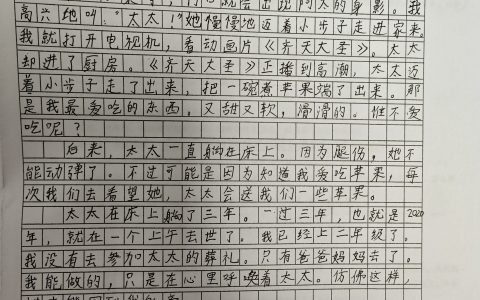 就会出现阿太的身影。我
高兴地叫："太太！"她慢慢地迈着小步子走进家来。
我就打开电视机，看动画片《齐天大圣》。太太
却进了厨房。《齐天大圣》正播到高潮，太太迈
着小步子走了出来，把一碗煮苹果端了出来。那
是我最爱吃的东西，又甜又软，滑滑的。谁不爱
吃呢？
后来，太太一直躺在床上。因为腿伤，她不
能动弹了。不过可能是因为知道我爱吃苹果，每
次我们去看望她，太太会送我们一些苹果。
太太在床上躺了三年。一过三年，也就是2020
年，就在一个上午去世了。我已经上二年级了。
我没有去参加太太的葬礼。只有爸爸妈妈去了。
我能做的，只是在心里呼唤着太太。仿佛这样，